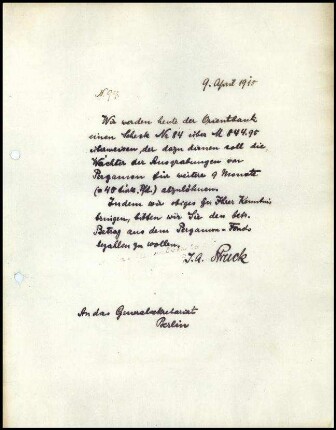 9. April 1910
N. 93
Wir werden heute der Orientbank
einen Scheck No 84 über M 844.95
überweisen, der dazu dienen soll die
Wächter der Ausgrabungen von
Pergamon für weitere 9 Monate
(a 40 türk. Pfd.) abzulöhnen.
Indem wir obiges zu Ihrer Kenntnis
bringen, bitten wir Sie den betr.
Betrag aus dem Pergamon-Fonds
bezahlen zu wollen.
I. A. Struck
An das Generalsekretariat
Berlin